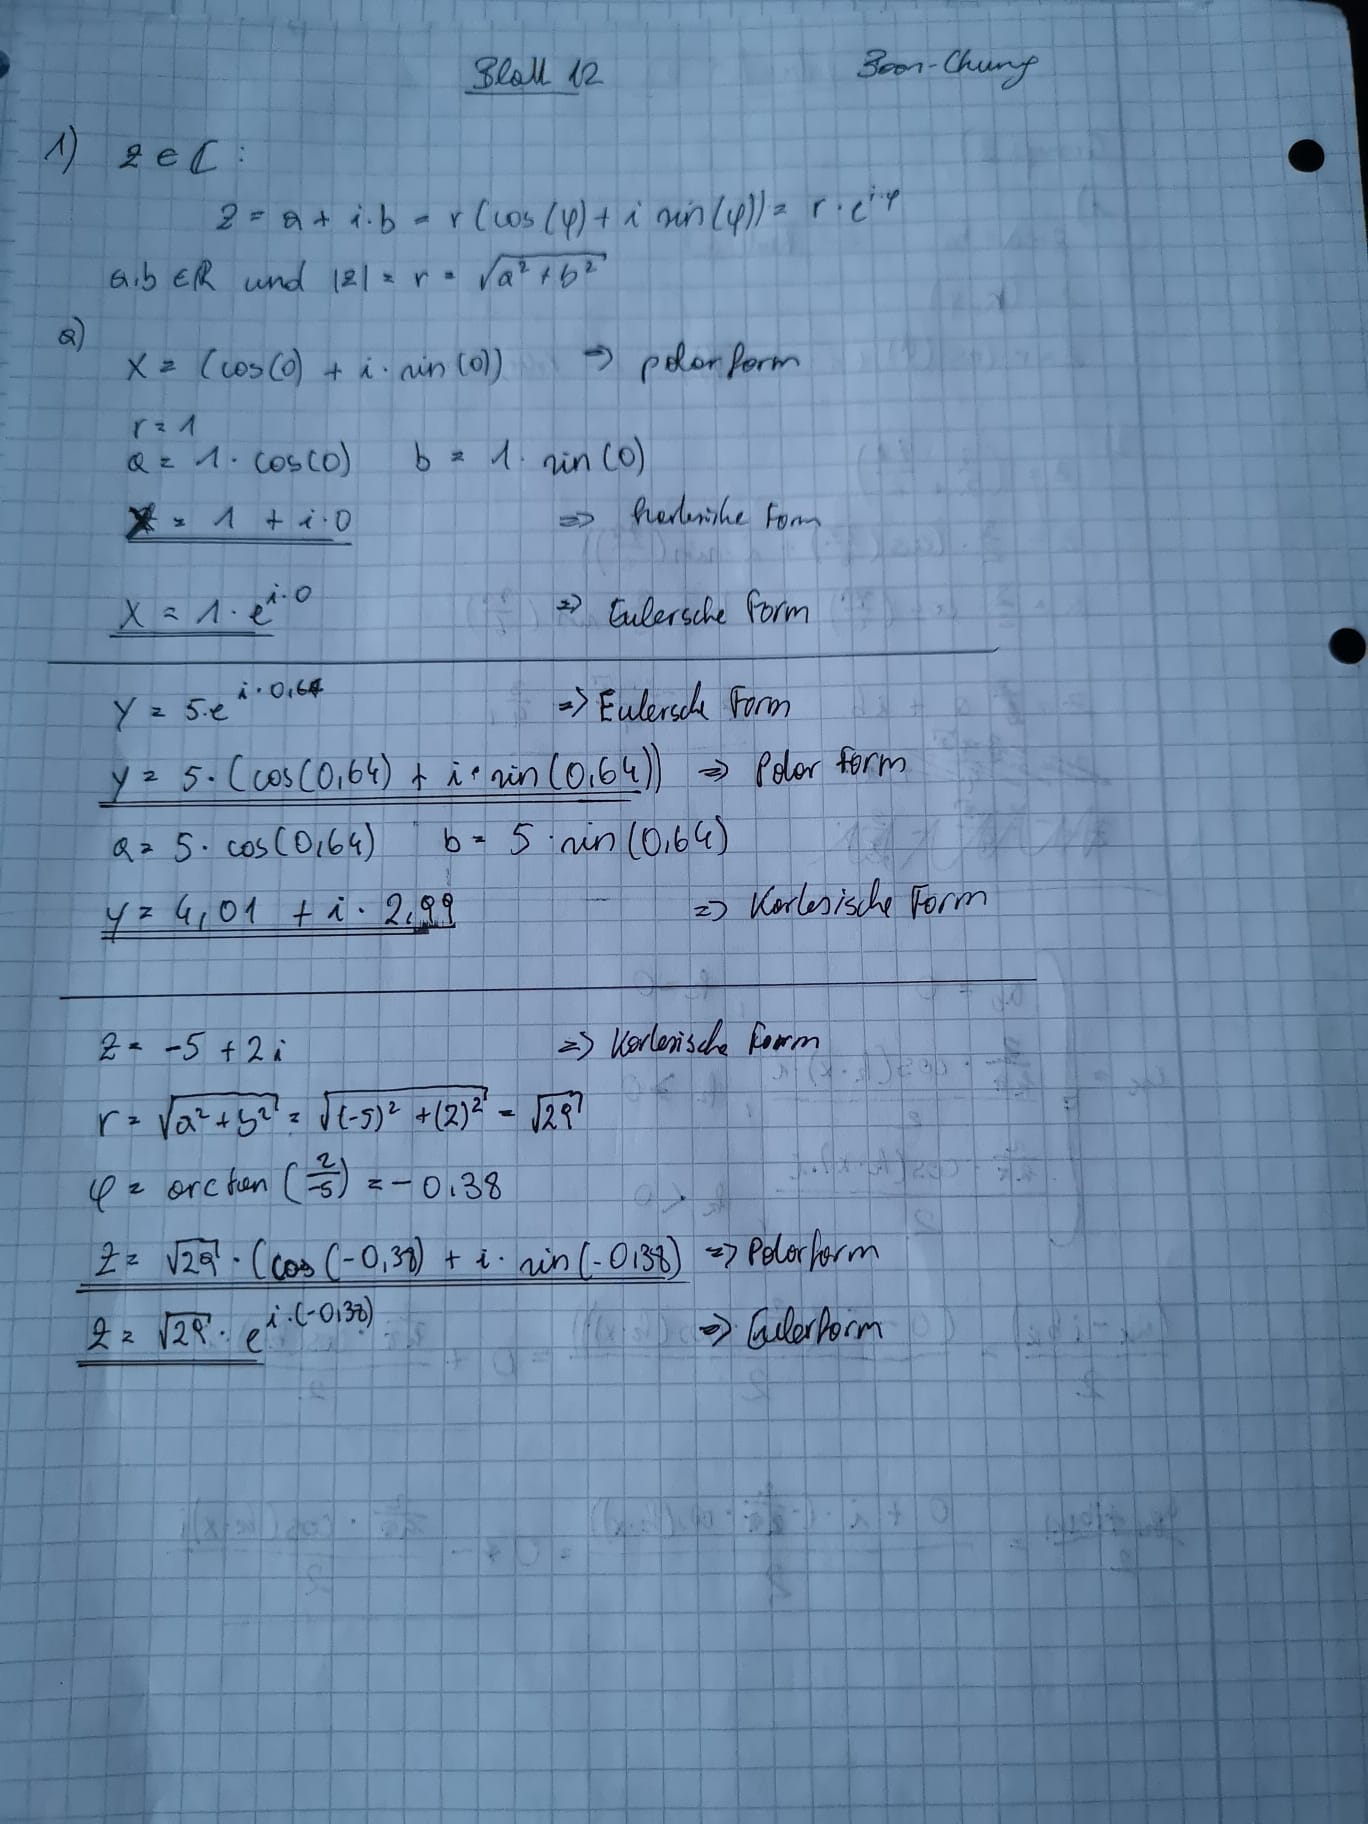 Blatt 12 Boon-Chung
1) z ∈ ℂ :
z = a + i·b = r (cos(φ) + i sin(φ)) = r · e^{i·φ}
a,b ∈ ℝ und |z| = r = √(a² + b²)
a)
x = (cos(0) + i · sin(0)) ⇒ polarform
r = 1
a = 1 · cos(0) b = 1 · sin(0)
x = 1 + i·0 ⇒ kartesische Form
x = 1 · e^{i·0} ⇒ Eulersche Form
y = 5·e^{i·0,64} ⇒ Eulersche Form
y = 5 · (cos(0,64) + i · sin(0,64)) ⇒ Polar form
a = 5 · cos(0,64) b = 5 · sin(0,64)
y = 4,01 + i · 2,99 ⇒ Kartesische Form
z = -5 + 2i ⇒ Kartesische Form
r = √(a² + b²) = √((-5)² + (2)²) = √29
φ = arctan (2/-5) = -0,38
z = √29 · (cos (-0,38) + i · sin (-0,38) ⇒ Polarform
z = √29 · e^{i·(-0,38)} ⇒ Eulerform